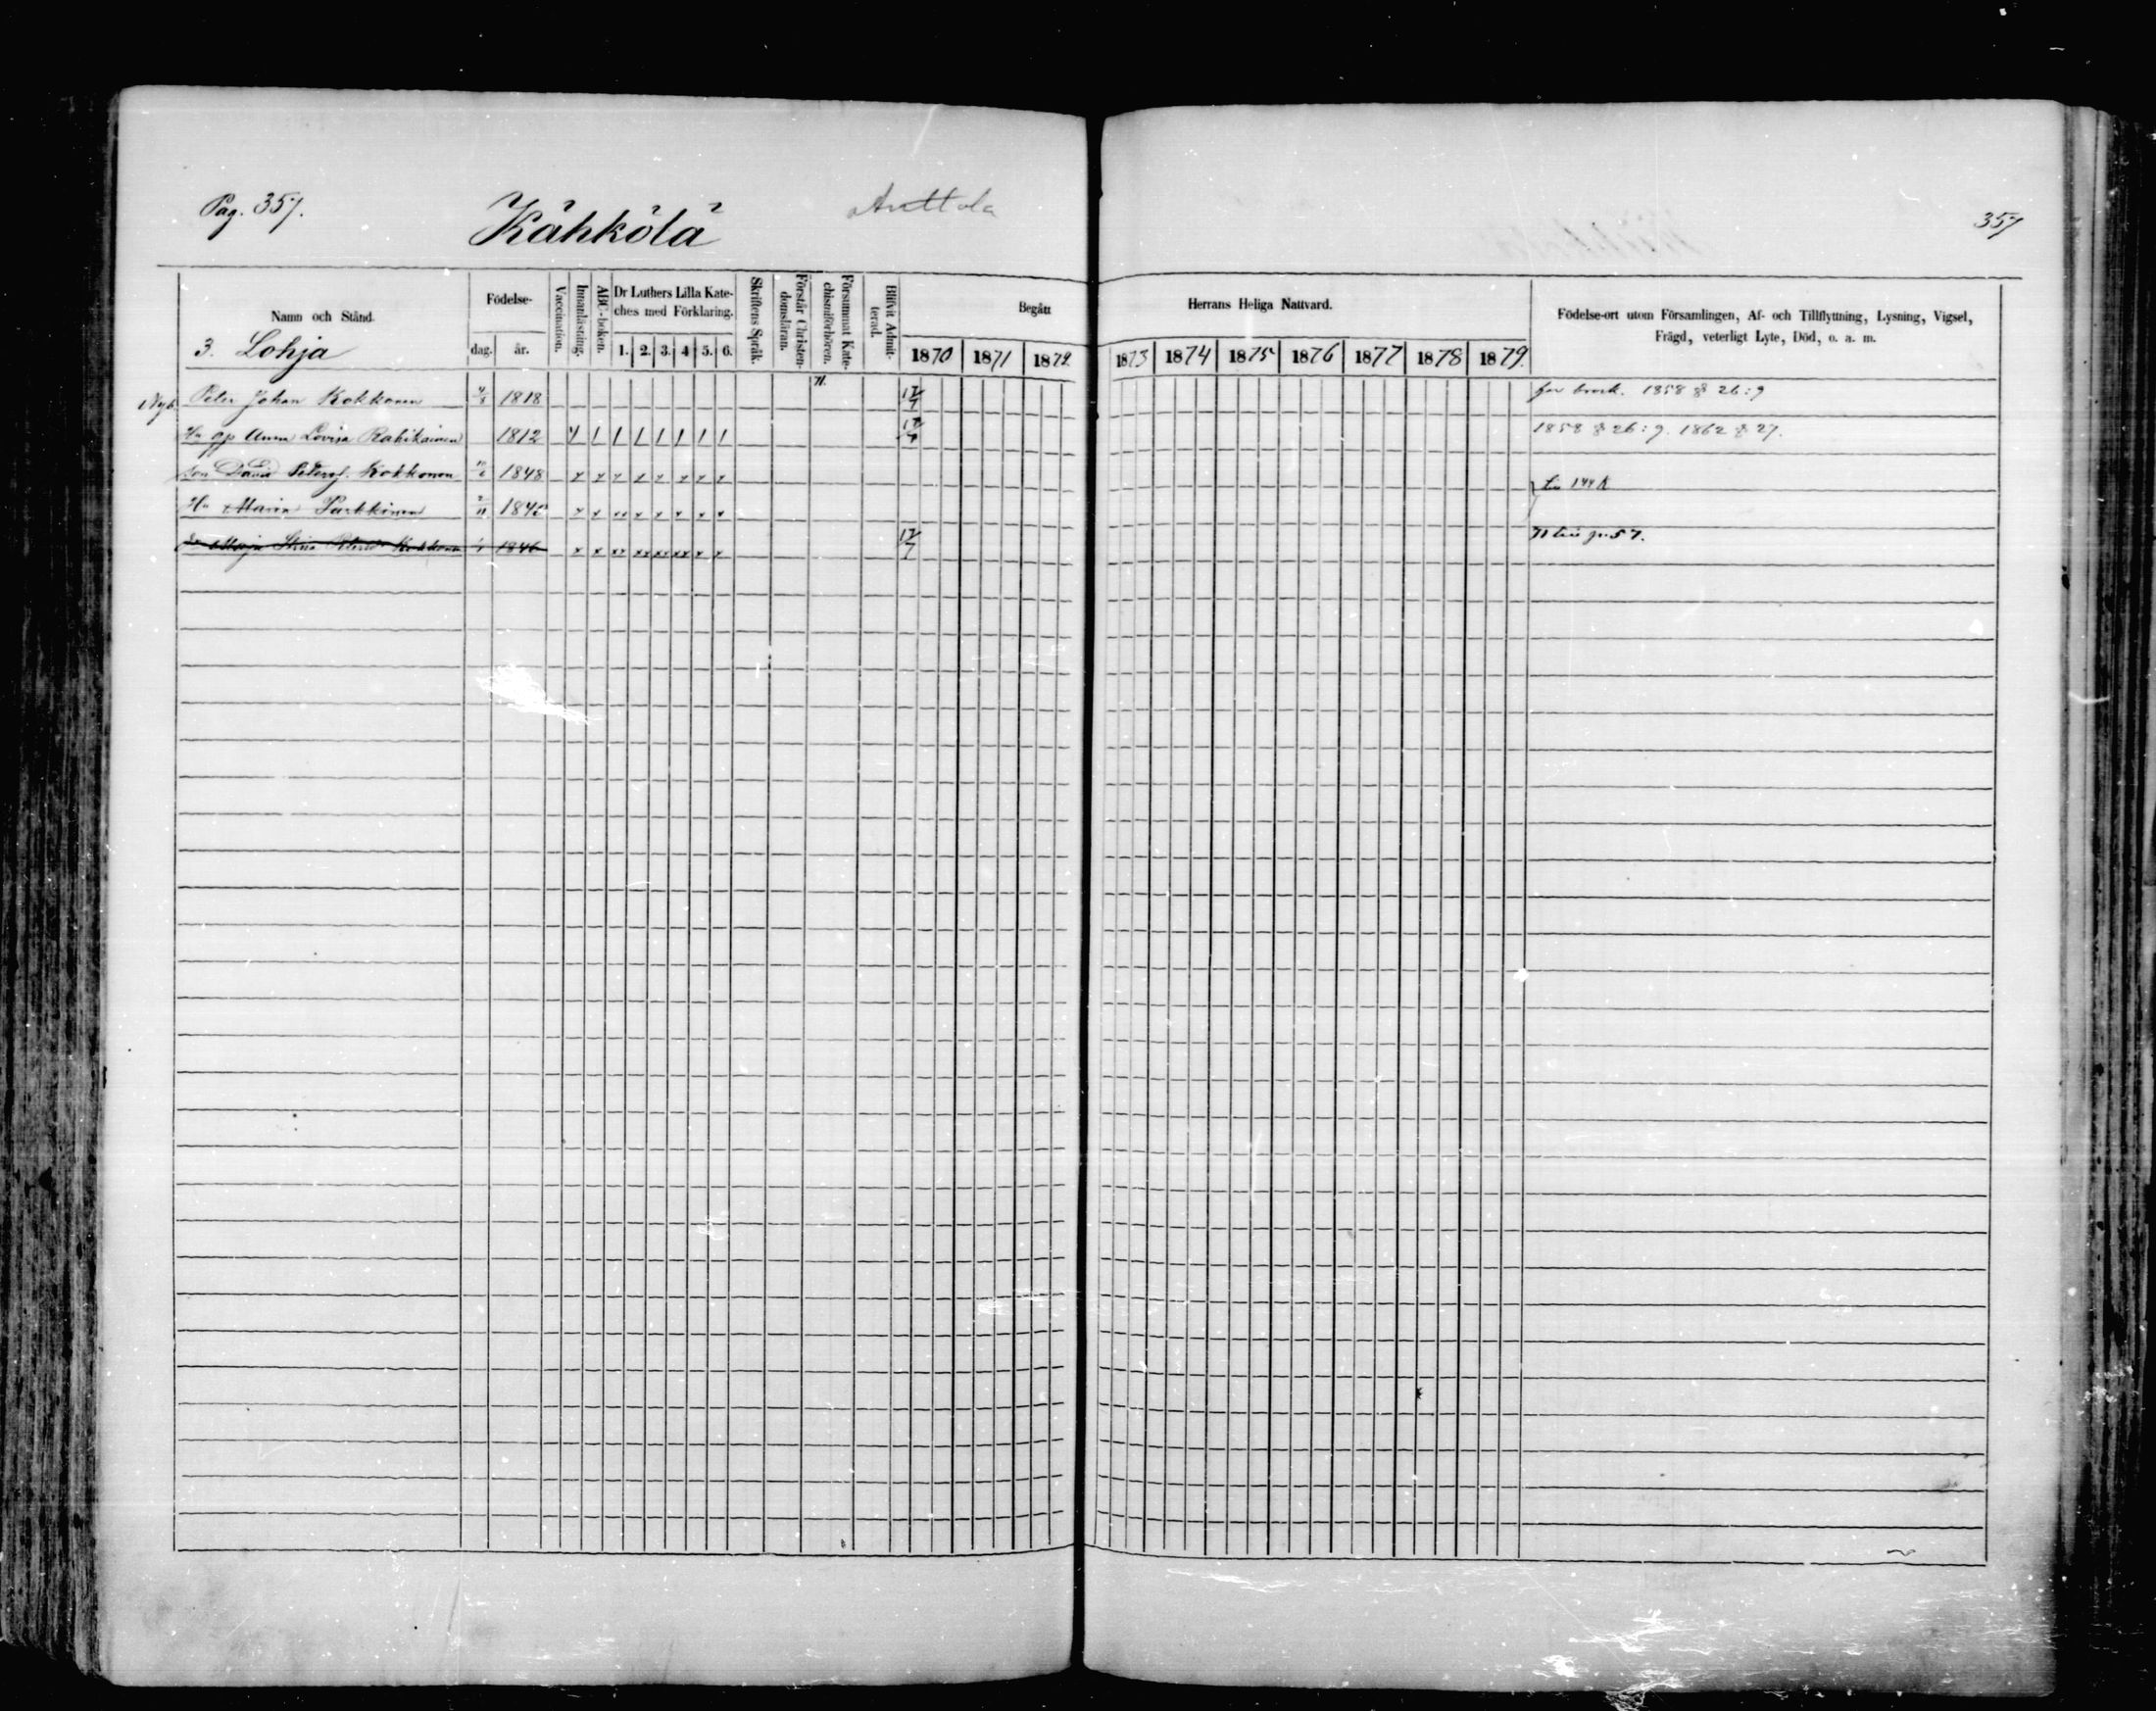 Pag. 357.
Kähkölä
Anttola
357
Namn och Stånd.
3. Lohja
Födelse-
dag. år.
Vaccination.
Innanläsning.
ABC-boken.
Dr Luthers Lilla Kate-
ches med Förklaring.
1. 2. 3. 4 5. 6.
Skriftens Språk.
Förstår Christen-
domsläran.
Försummat Kate-
chismiförhören.
Blifvit Admit-
terad.
Begått Herrans Heliga Nattvard.
1870 1871 1872 1873 1874 1875 1876 1877 1878 1879.
Födelse-ort utom Församlingen, Af- och Tillflyttning, Lysning, Vigsel,
Frägd, veterligt Lyte, Död, o. a. m.
Nyb. Peter Johan Kokkonen 1818 71. 17/7 1858 § 26:9
Hu Anna Lovisa Rahikainen 1812 17/7 1858 § 26:9. 1862 § 27.
son David Petersf. Kokkonen 1848 x x x x x x x x
Hu Maria 1845 x x xx x x x x x
Maja Stina Kokkonen 1846 x x xx xx xx xx x x 17/7